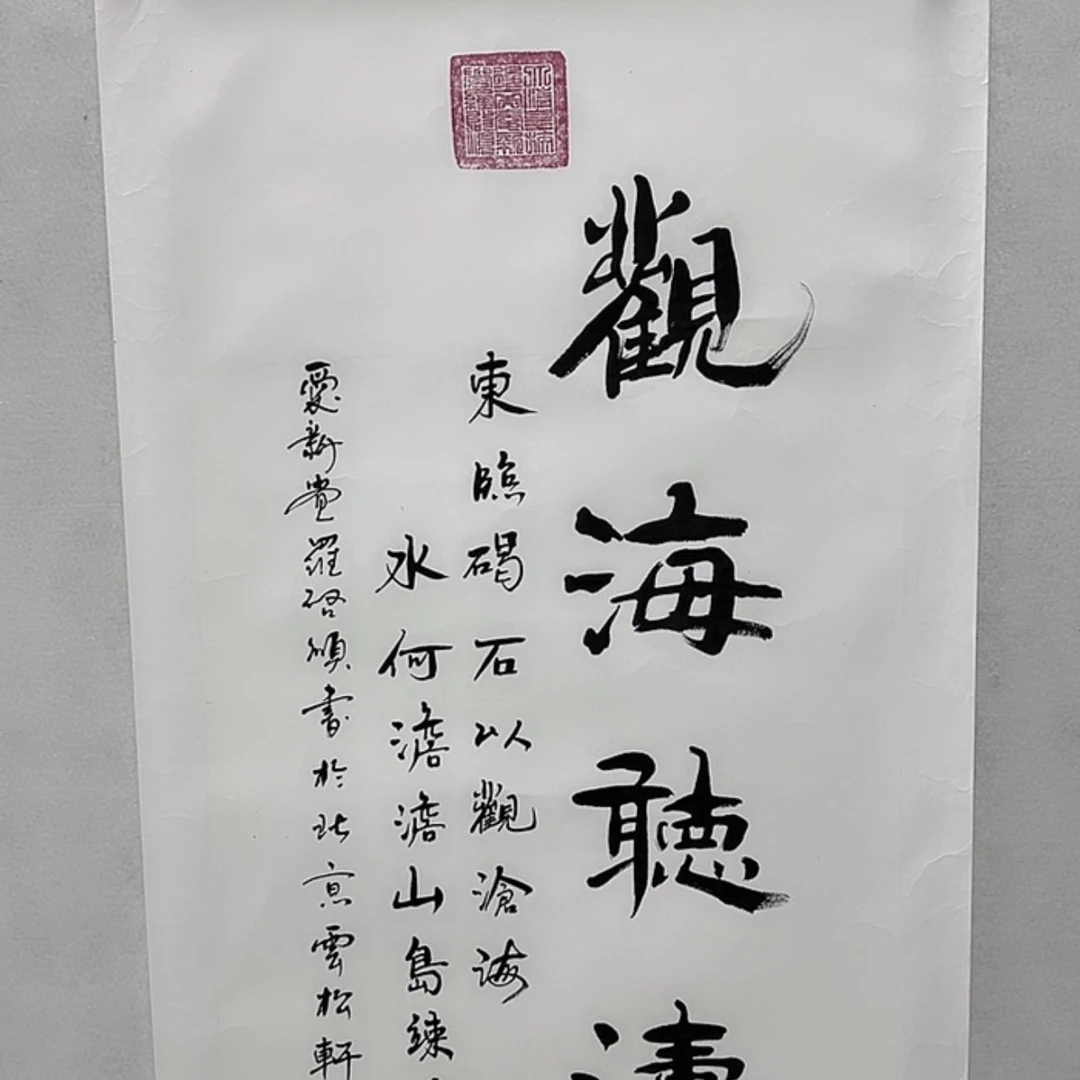 觀海聽濤
東臨碣石以觀滄海
水何澹澹山島竦
愛新覺羅啓順書於北京雲松軒